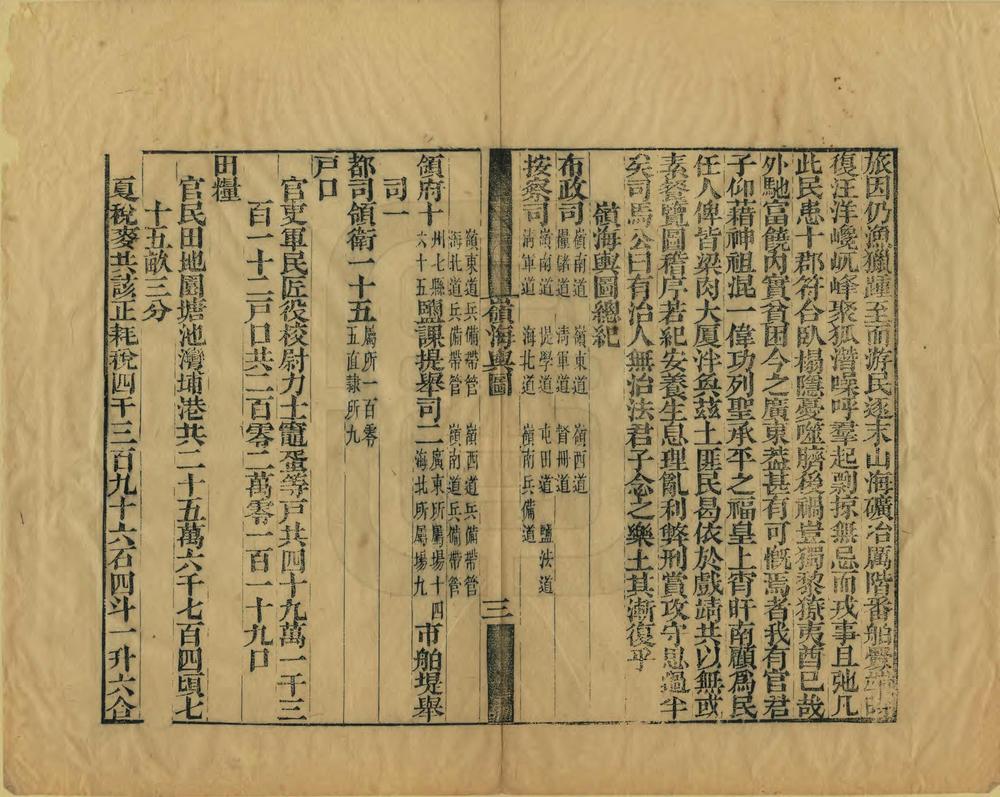 旅因仍漁獵踵至而游民逐末山海礦冶厲階番舶釁
復汪洋巉岏峰聚狐潛噪呼羣起剽掠無忌而戎事且弛凡
此民患十郡符合臥榻隱憂噬臍後禍豈獨黎獠夷酋已哉
外馳富饒內實貧困今之廣東葢甚有可慨焉者我有官君
子仰藉神祖混一偉功列聖承平之福皇上宵旰南顧爲民
任人俾皆粱肉大厦泮奐茲土匪民曷依於戲靖共以無或
素餐覽圖稽序若紀安養生息理亂利弊刑賞攻守思過半
矣司馬公曰有治人無治法君子念之樂土其漸復乎
嶺海輿圖總紀
布政司 嶺南道 嶺東道 嶺西道
糧儲道 淸軍道 督冊道
按察司 嶺南道 提學道 屯田道 鹽法道
淸軍道 海北道 嶺南兵備道
嶺海輿圖 三
嶺東道兵備帶管 嶺西道兵備帶管
海北道兵備帶管 嶺南道兵備帶管
領府十 州七縣六十五 鹽課提舉司二 廣東所屬場十四海北所屬場九 市舶堤舉
司一
都司領衛一十五 屬所一百零五直隸所九
戶口
官吏軍民匠役校尉力士竈蛋等戶共四十九萬一千三
百一十二戶口共二百零二萬零一百一十九口
田糧
官民田地園塘池灣埔港共二十五萬六千七百四頃七
十五畝三分
夏稅麥共該正耗稅四千三百九十六石四斗一升六合